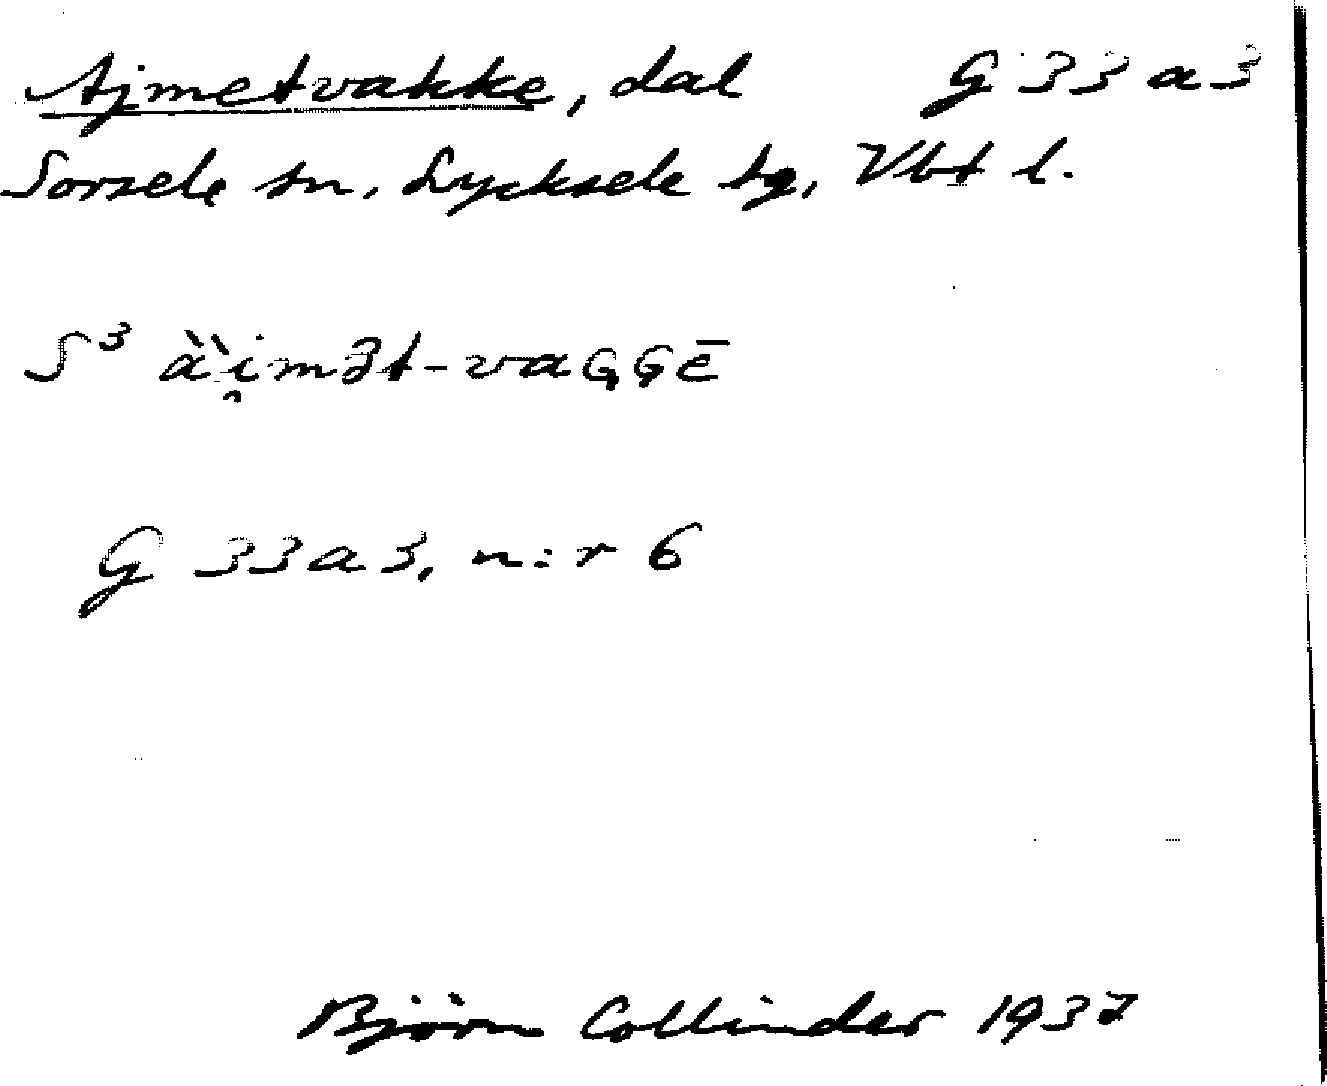 Ajmetvakke, dal G 33 a 3
Sorsele sn. Lycksele tg, Vbt l.
S³ à̀i̯mɜt-vaɢɢē
G 33 a 3, n:r 6
Björn Collinder 1937